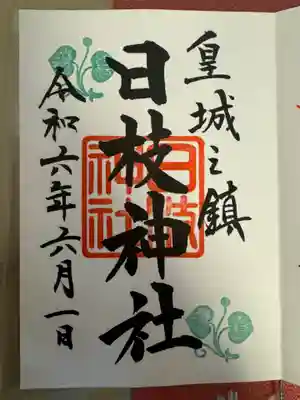 皇城之鎮
日枝神社
日枝神社
令和六年六月一日